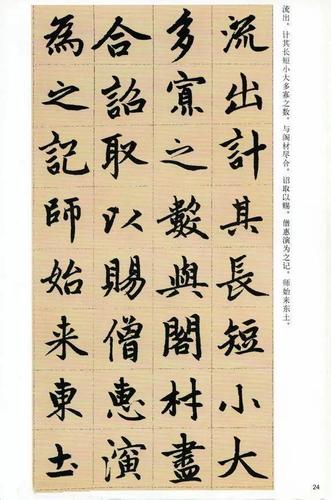 流出，计其长短小大多寡之数，与阁材尽合。诏取以赐，僧惠演为之记。师始来东土，
流出計其長短小大
多寡之數與閣材盡
合詔取以賜僧惠演
為之記師始来東土
24